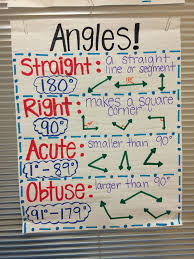 Angles!
Straight: a straight
line or segment
180°
180
Right: makes a square
corner
90°
Acute: smaller than 90°
1°-89°
Obtuse: larger than 90°
91°-179°